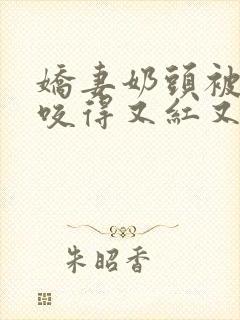 嬌妻奶頭被
咬得又紅又
朱昭香